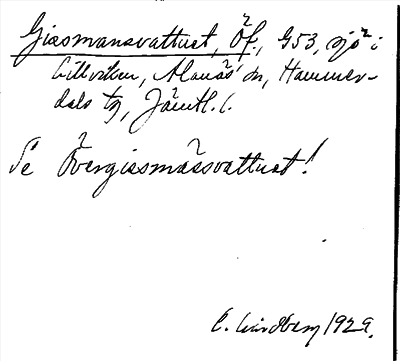 Gissmansvattnet, Öf., G53, sjö i
Lillviken, Alanäs sn, Hammer-
dals tg, Jämtl. l.
Se Övergissmansvattnet!
C. Lindberg 1929.